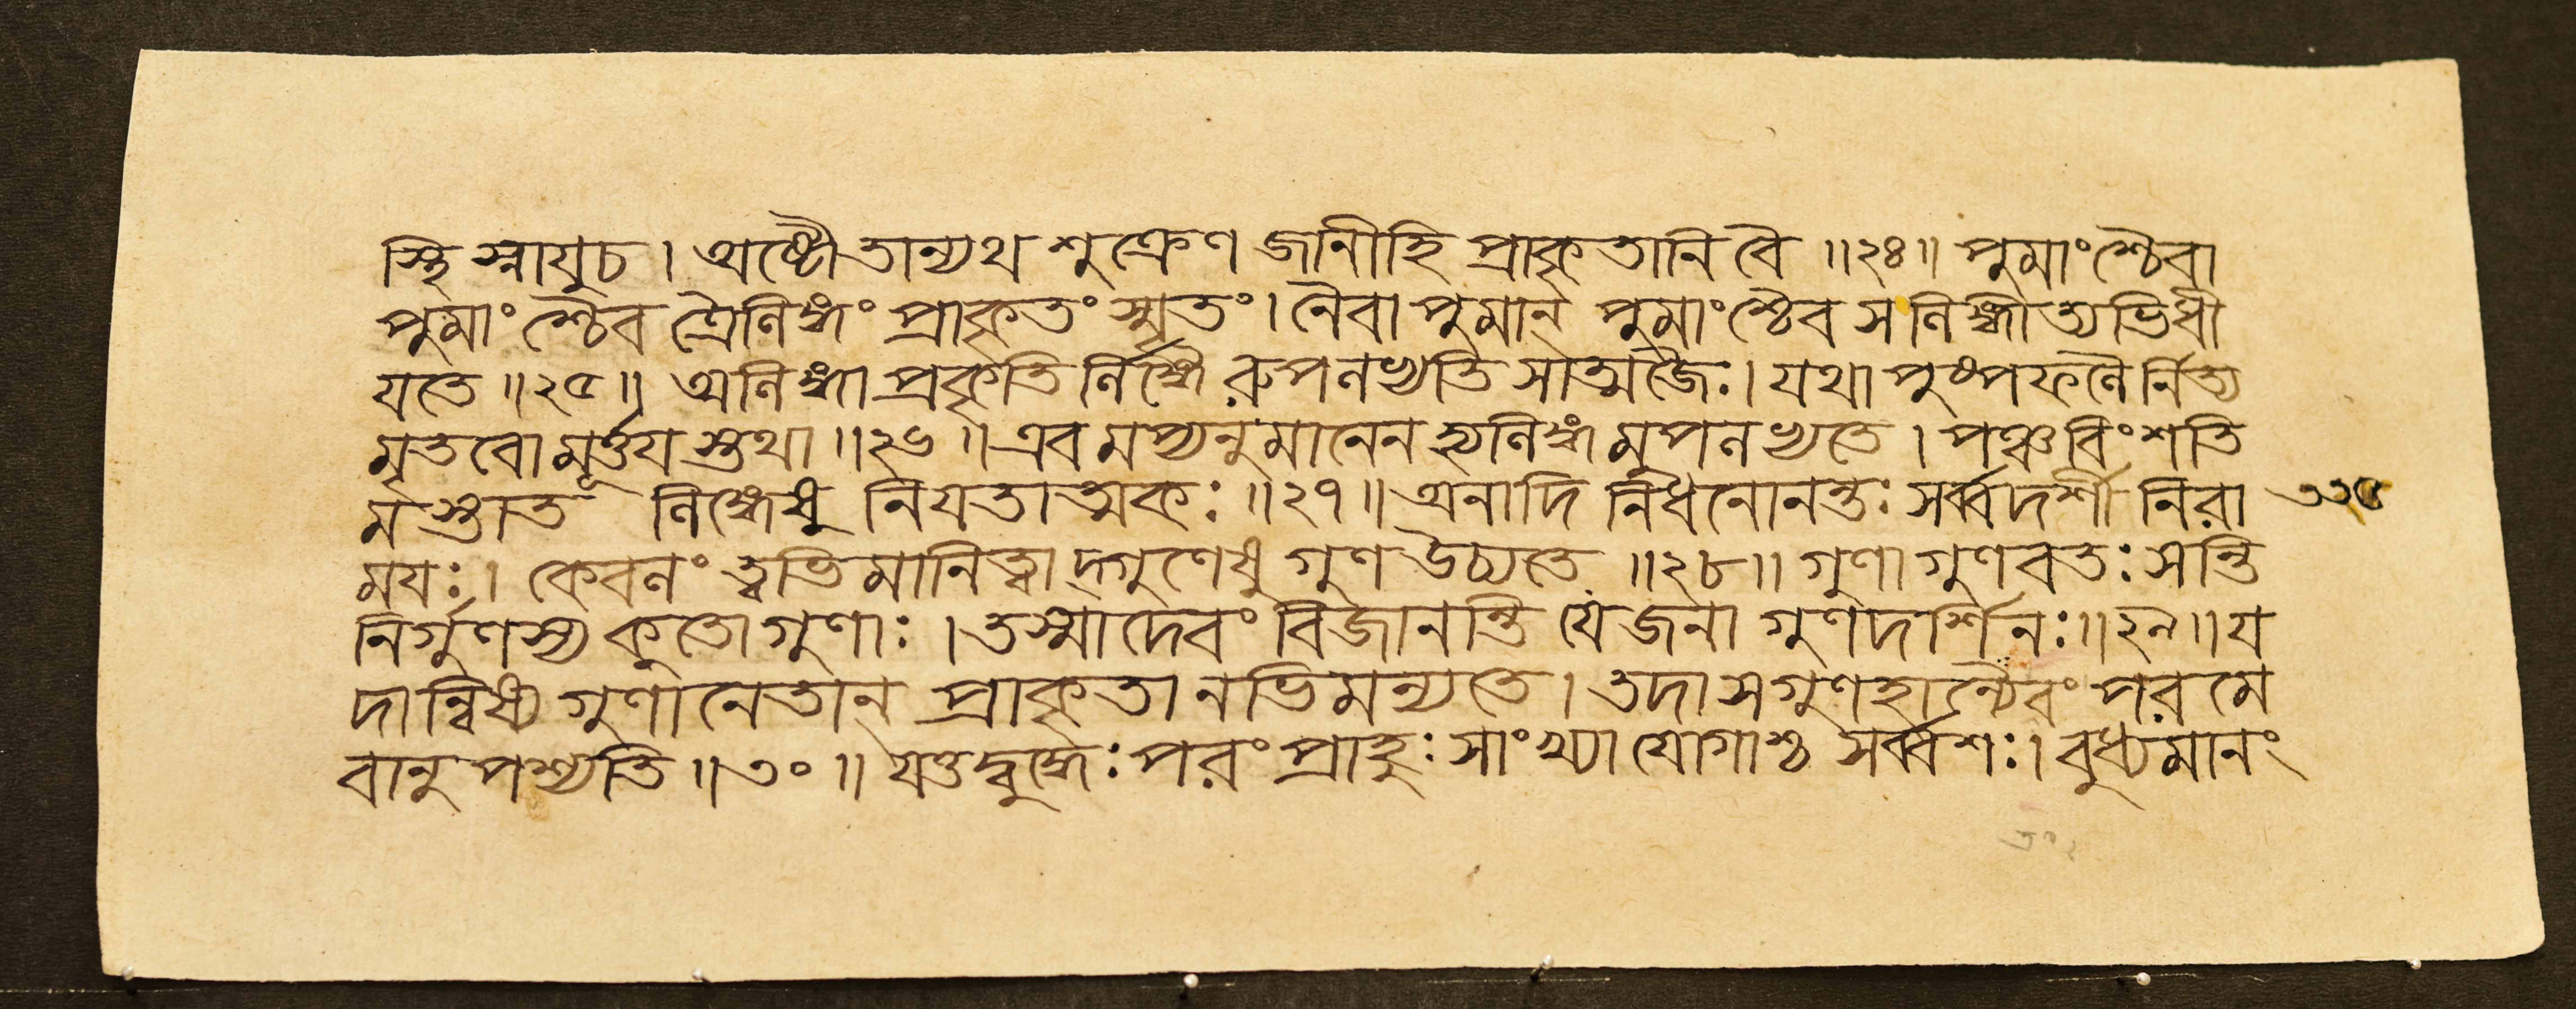 স্থি স্নাযুচ । অষ্টৌতান্যথ শুক্রেণ জানীহি প্রাকৃতানি বৈ ॥২৪॥ পুমাংশ্চৈবা
পুমাংশ্চৈব ত্রৈলিঙ্গ্যং প্রাকৃতং স্মৃতং। নৈবাপুমান্ পুমাংশ্চৈব স লিঙ্গীত্যভিধী
যতে ॥২৫॥ অলিঙ্গা প্রকৃতি র্লিঙ্গৈ রুপলভ্যতি সাত্মজৈঃ। যথা পুষ্পফলৈর্নিত্য
মৃতবো মূর্ত্তয স্তথা ॥২৬॥ এবমপ্যনুমানেন হ্যলিঙ্গ মুপলভ্যতে । পঞ্চবিংশতি
ম স্তাত লিঙ্গেষু নিযতাত্মকঃ ॥২৭॥ অনাদি নিধনোনন্তঃ সর্ব্বদর্শী নিরা
মযঃ। কেবলং ত্বভিমানিত্বাদ্গুণেষু গুণ উচ্যতে ॥২৮॥ গুণা গুণবতঃ সন্তি
নির্গুণস্য কুতো গুণাঃ । তস্মাদেবং বিজানন্তি যে জনা গুণদর্শিনঃ॥২৯॥ য
দা গুণানেতান্ প্রাকৃতানভিমন্যতে। তদা স গুণহান্যৈবং পরমে
বানুপশ্যতি ॥৩০॥ যত্তদ্বুদ্ধেঃ পরং প্রাহুঃ সাংখ্যা যোগাশ্চ সর্ব্বশঃ। বুধ্যমানং